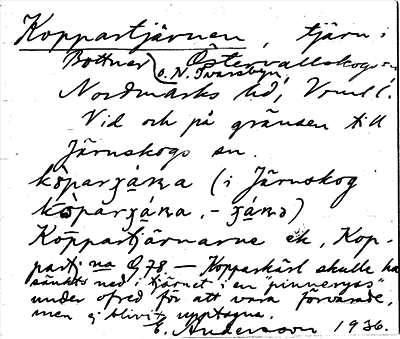 Koppartjärnen, tjärn i
Bottner o. N. Svarsbyn, Östervallskogs sn
Nordmarks hd, Vrml.
Vid och på gränsen till
Järnskogs sn.
kòparʒä́ɳa (i Järnskog
kòparʒä́ɳa, - ʒä́ɳə)
Koppartjärnarne ek, Kop-
partj:na G. 78. — Kopparkärl skulle ha
sänkts ned i tjärnet i en "pinneryss"
under ofred för att vara förvarade,
men ej blivit upptagna.
E. Andersson 1936.